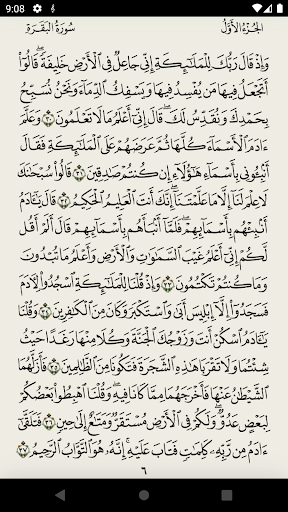 9:08
الجزء الأول
سورة البقرة
وَإِذْ قَالَ رَبُّكَ لِلْمَلَٰٓئِكَةِ إِنِّى جَاعِلٌ فِى ٱلْأَرْضِ خَلِيفَةً ۖ قَالُوٓا۟
أَتَجْعَلُ فِيهَا مَن يُفْسِدُ فِيهَا وَيَسْفِكُ ٱلدِّمَآءَ وَنَحْنُ نُسَبِّحُ
بِحَمْدِكَ وَنُقَدِّسُ لَكَ ۖ قَالَ إِنِّىٓ أَعْلَمُ مَا لَا تَعْلَمُونَ ٣٠ وَعَلَّمَ
ءَادَمَ ٱلْأَسْمَآءَ كُلَّهَا ثُمَّ عَرَضَهُمْ عَلَى ٱلْمَلَٰٓئِكَةِ فَقَالَ
أَنۢبِـُٔونِى بِأَسْمَآءِ هَٰٓؤُلَآءِ إِن كُنتُمْ صَٰدِقِينَ ٣١ قَالُوا۟ سُبْحَٰنَكَ
لَا عِلْمَ لَنَآ إِلَّا مَا عَلَّمْتَنَآ ۖ إِنَّكَ أَنتَ ٱلْعَلِيمُ ٱلْحَكِيمُ ٣٢ قَالَ يَٰٓـَٔادَمُ
أَنۢبِئْهُم بِأَسْمَآئِهِمْ ۖ فَلَمَّآ أَنۢبَأَهُم بِأَسْمَآئِهِمْ قَالَ أَلَمْ أَقُل
لَّكُمْ إِنِّىٓ أَعْلَمُ غَيْبَ ٱلسَّمَٰوَٰتِ وَٱلْأَرْضِ وَأَعْلَمُ مَا تُبْدُونَ
وَمَا كُنتُمْ تَكْتُمُونَ ٣٣ وَإِذْ قُلْنَا لِلْمَلَٰٓئِكَةِ ٱسْجُدُوا۟ لِـَٔادَمَ
فَسَجَدُوٓا۟ إِلَّآ إِبْلِيسَ أَبَىٰ وَٱسْتَكْبَرَ وَكَانَ مِنَ ٱلْكَٰفِرِينَ ٣٤ وَقُلْنَا
يَٰٓـَٔادَمُ ٱسْكُنْ أَنتَ وَزَوْجُكَ ٱلْجَنَّةَ وَكُلَا مِنْهَا رَغَدًا حَيْثُ
شِئْتُمَا وَلَا تَقْرَبَا هَٰذِهِ ٱلشَّجَرَةَ فَتَكُونَا مِنَ ٱلظَّٰلِمِينَ ٣٥ فَأَزَلَّهُمَا
ٱلشَّيْطَٰنُ عَنْهَا فَأَخْرَجَهُمَا مِمَّا كَانَا فِيهِ ۖ وَقُلْنَا ٱهْبِطُوا۟ بَعْضُكُمْ
لِبَعْضٍ عَدُوٌّ ۖ وَلَكُمْ فِى ٱلْأَرْضِ مُسْتَقَرٌّ وَمَتَٰعٌ إِلَىٰ حِينٍ ٣٦ فَتَلَقَّىٰٓ
ءَادَمُ مِن رَّبِّهِۦ كَلِمَٰتٍ فَتَابَ عَلَيْهِ ۚ إِنَّهُۥ هُوَ ٱلتَّوَّابُ ٱلرَّحِيمُ ٣٧
٦